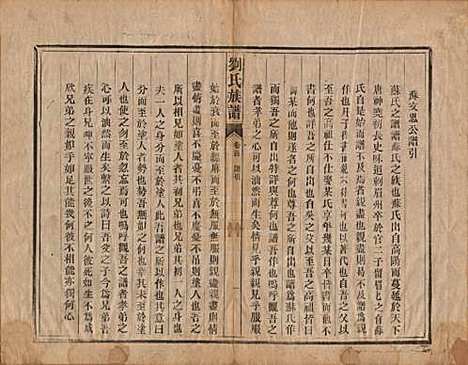 蘇文忠公譜引
蘇氏之譜譜蘇氏之族也蘇氏出高陽而蔓延於天下
唐神堯初長史味道刺眉州卒於官一子留眉眉之有蘇
氏自是始而譜不及者親盡也親盡則曷為不及譜為親
作也凡子得書而孫不得書者何也以著代也自吾之父以
至吾之高祖仕不仕娶某氏享年幾某日卒皆書而他不書
者何也詳吾之所自出也自吾之父以至吾之高祖皆曰諱
某而他則遂名之何也尊吾之所自出也譜為蘇氏作
而獨吾之所自出得詳與尊何也譜吾作也嗚呼觀吾之
譜者孝弟之心可以油然而生矣情見乎親親見乎服服
劉氏族譜
卷首
譜引
一
始於衰而至於緦麻而至於無服無服則親盡親盡則情
盡情盡則喜不慶憂不弔喜不慶憂不弔則塗人也吾之
所以相視如塗人者其初兄弟也兄弟其初一人之身也悲
夫一人之身分而至於塗人此吾譜之所以作也其意曰
分而至於塗人者勢也勢吾無如之何也幸其未至於塗
人也使其無至於忽忘焉可也嗚呼觀吾之譜者孝弟之
心可以油然而生矣繫之以詩曰吾父之子今為吾兄吾
疾在身兄呻不寧數世之後不知何人彼死而生不為戚
欣兄弟之親如足與手其能幾何彼不相能彼獨何心